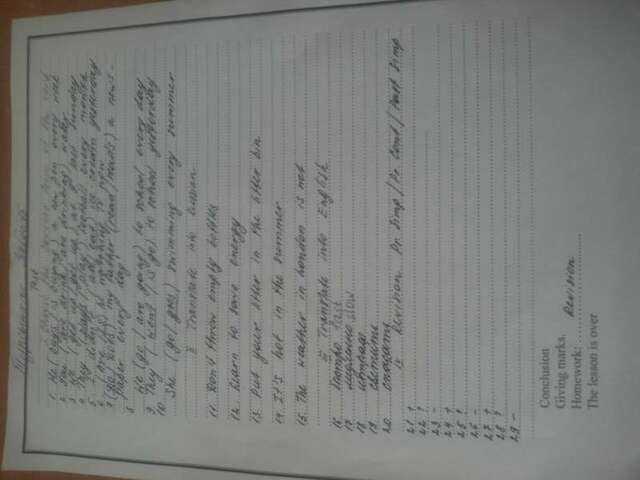 Test
1. He (buys / is buying) a new pen every week
2. You (are drink / are drinking) water
3. He (get up / got up) at 9 last Sunday
4. They (plays / play) football every month
5. I (didn't / ) ice-cream yesterday
6. (Are / Is) he watching TV now
7 (Do / Does) my father (read / reads) a news-
paper every day?
8
He (go / are going) to school every day
9. They ( went / is go) to school yesterday
10.
She (go / goes) swimming every summer
II Translate into Russian
11. Don't throw empty bottles
12. Learn to save energy
13. Put your litter in the litter bin
14. It's hot in the summer
15. The weather in London is hot
III Translate into English
16. быстро fast
17 медленно slow
18
19 светить
20 спасать
IV Revision Pr. Simp / Pr. Cont / Past Simp
21 +
22 ?
23 -
24 +
25 ?
26 -
27 +
28 ?
29 -
Conclusion
Giving marks.
Homework: Revision
The lesson is over